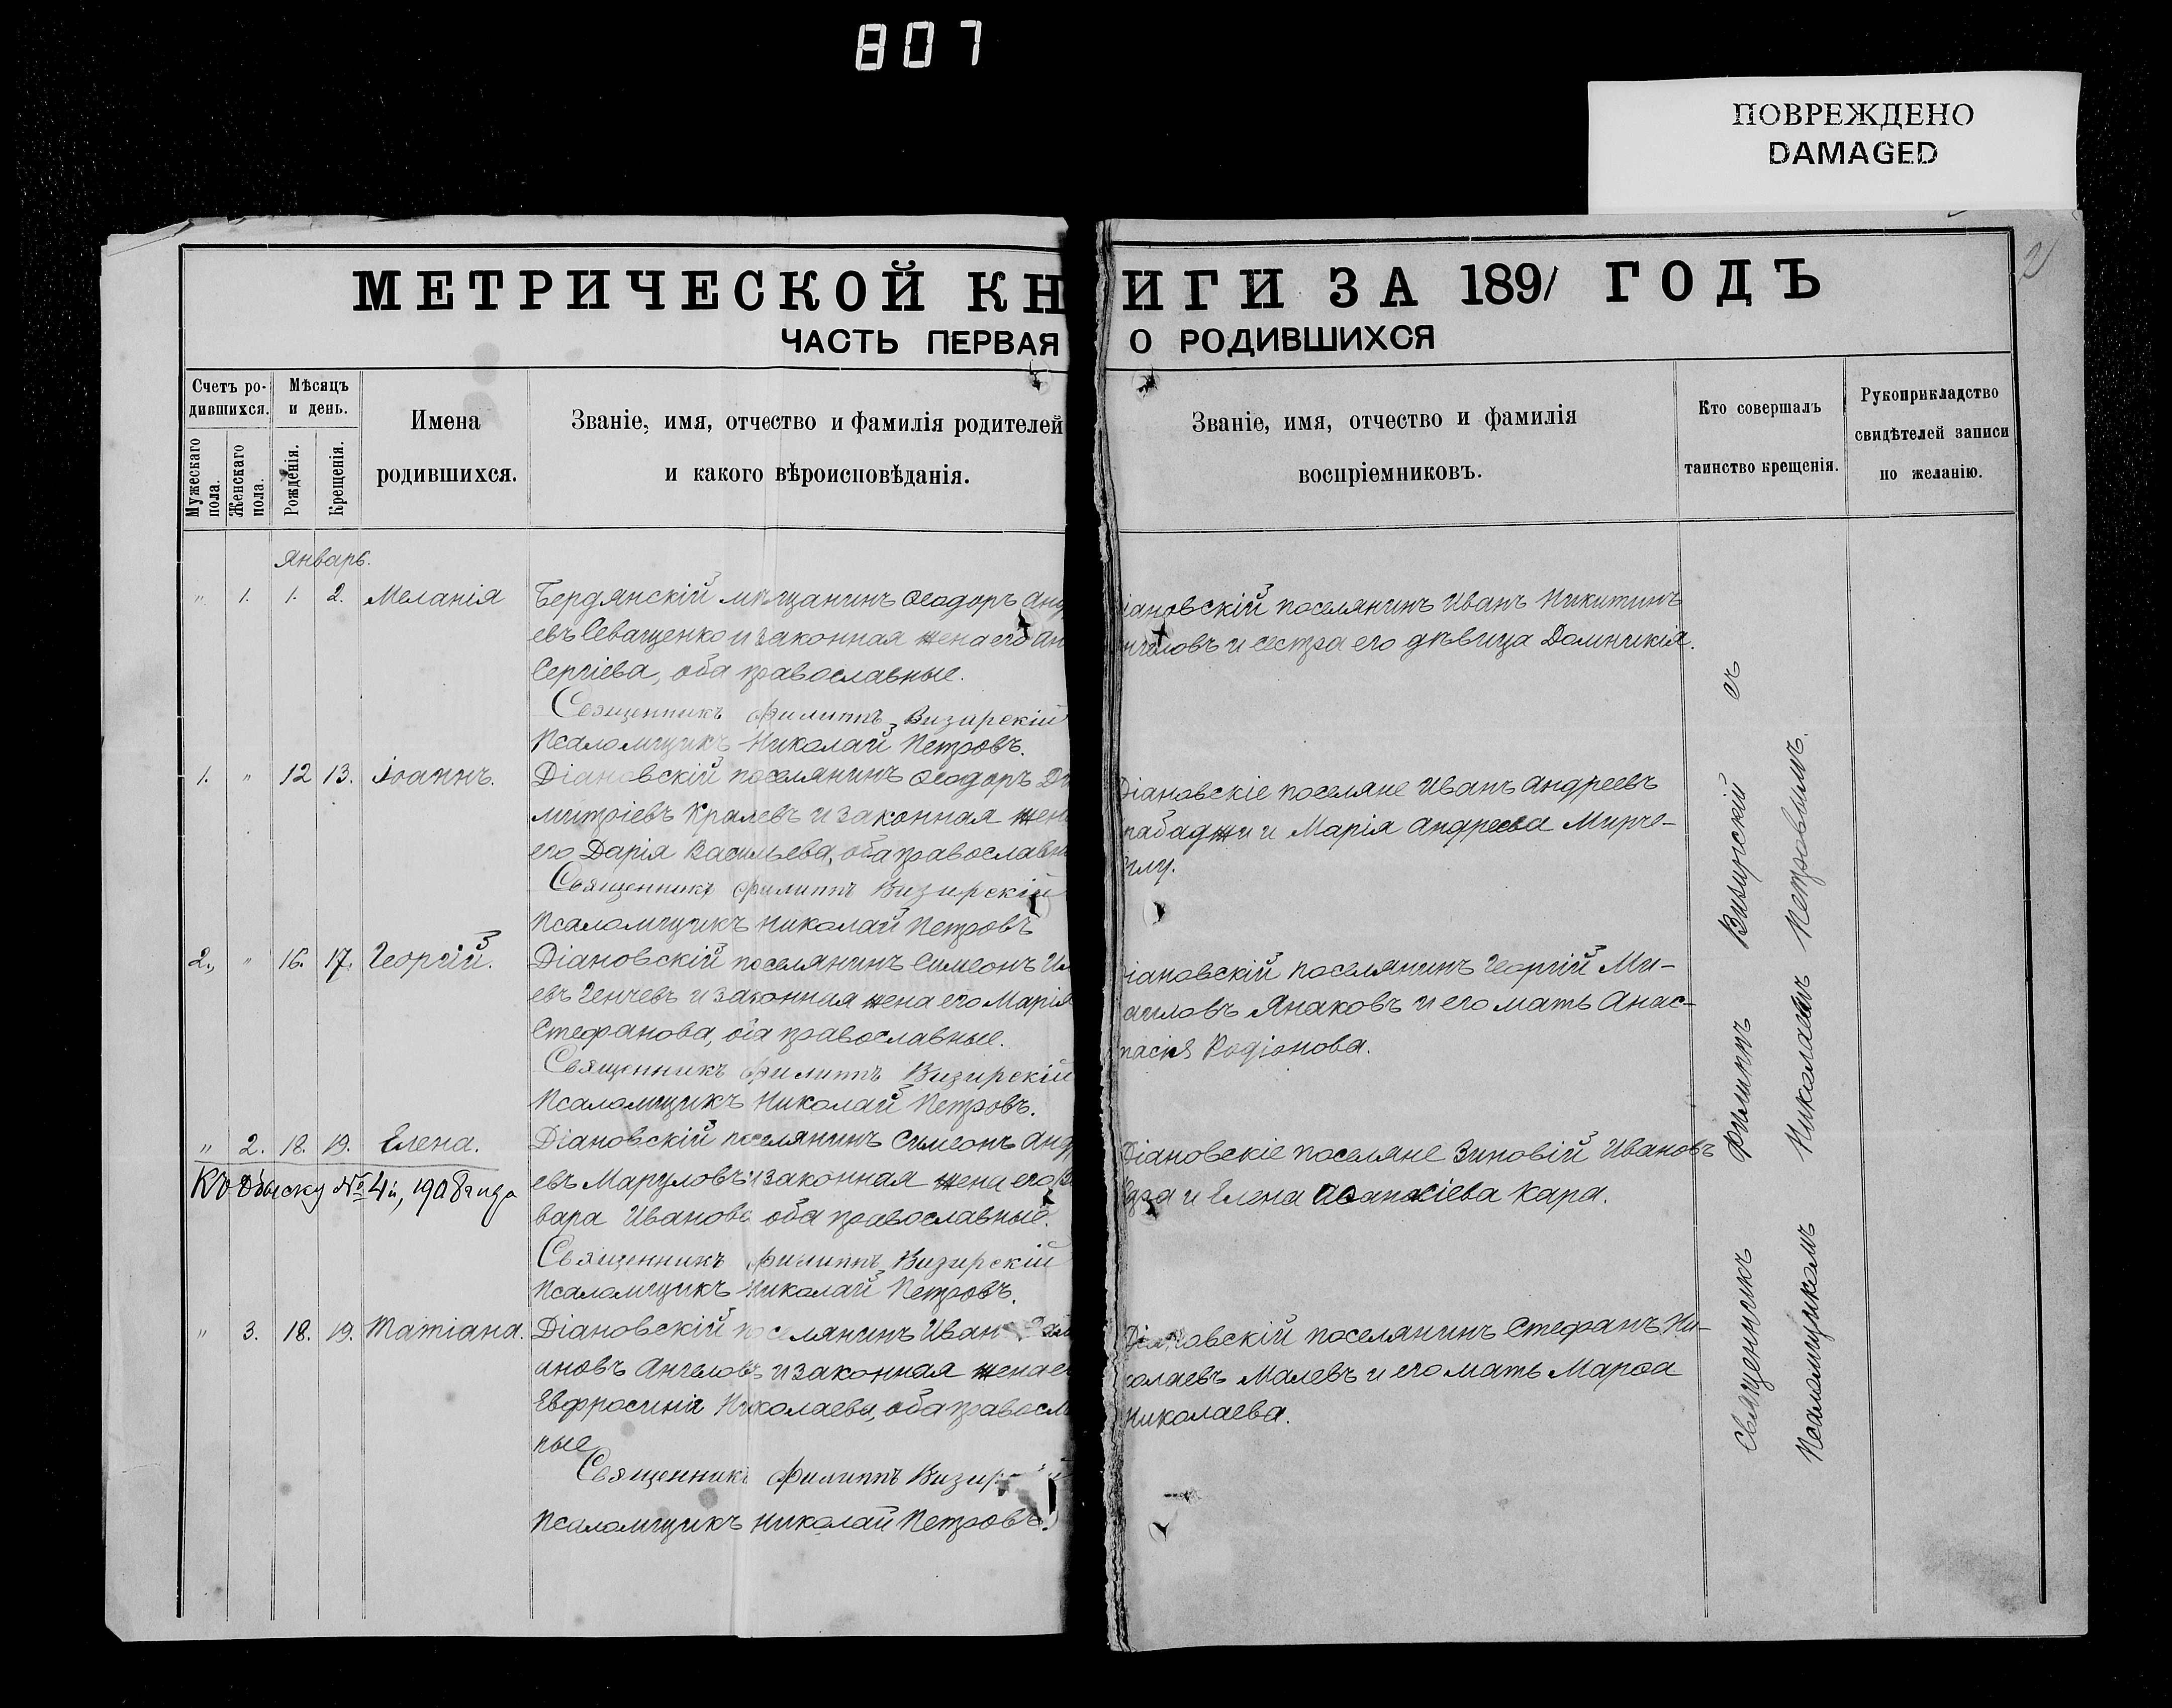 807
ПОВРЕЖДЕНО
DAMAGED
2
МЕТРИЧЕСКОЙ КНИГИ ЗА 1891 ГОДЪ
ЧАСТЬ ПЕРВАЯ О РОДИВШИХСЯ
Счетъ ро-
дившихся.
Мужескаго пола.
Женскаго пола.
Мѣсяцъ
и день.
Рожденія.
Крещенія.
Имена
родившихся.
Званіе, имя, отчество и фамилія родителей
и какого вѣроисповѣданія.
Званіе, имя, отчество и фамилія
воспріемниковъ.
Кто совершалъ
таинство крещенія.
Рукоприкладство
свидѣтелей записи
по желанію.
Январь.
" 1. 1. 2. Меланія
Бердянскій мѣщанинъ Ѳеодоръ Анд
евъ Севащенко и законная жена его Ан
Сергіева, оба православные.
Священникъ Филиппъ Визирскій
Псаломщикъ Николай Петровъ.
іановскій поселянинъ Иванъ Никитинъ
нгеловъ и сестра его дѣвица Домникія.
1. " 12 13. Іоаннъ.
Діановскій поселянинъ Ѳеодоръ Ди
митріевъ Кралевъ и законная жен
его Дарія Васильева, оба православн
Священникъ Филиппъ Визирскій
Псаломщикъ Николай Петровъ
Діановскіе поселяне Иванъ Андреевъ
рабаджи и Марія Андреева Мирче-
глу.
2. " 16. 17. Георгій.
Діановскій поселянинъ Симеонъ Ил
евъ Генчевъ и законная жена его Марія
Стефанова, оба православные.
Священникъ Филиппъ Визирскій
Псаломщикъ Николай Петровъ.
іановскій поселянинъ Георгій Ми-
аиловъ Янаковъ и его мать Анас-
тасія Родіонова.
" 2. 18. 19. Елена.
Къ обыску № 4й, 1908 года
Діановскій поселянинъ Симеонъ Анд
евъ Маруловъ и законная жена его В
вара Иванова оба православные.
Священникъ Филиппъ Визирскій
Псаломщикъ Николай Петровъ.
Діановскіе поселяне Зиновій Ивановъ
и Елена Аѳанасіева Кара.
" 3. 18. 19. Татіана.
Діановскій поселянинъ Иван
ановъ Ангеловъ и законная жена е
Евфросинія Николаева, оба правосл
ные
Священникъ Филиппъ Визир
Псаломщикъ Николай Петровъ.
Діановскій поселянинъ Стефанъ Ни-
колаевъ Малевъ и его мать Марѳа
Николаева.
Священникъ Филиппъ Визирскій съ
Псаломщикомъ Николаемъ Петровымъ.